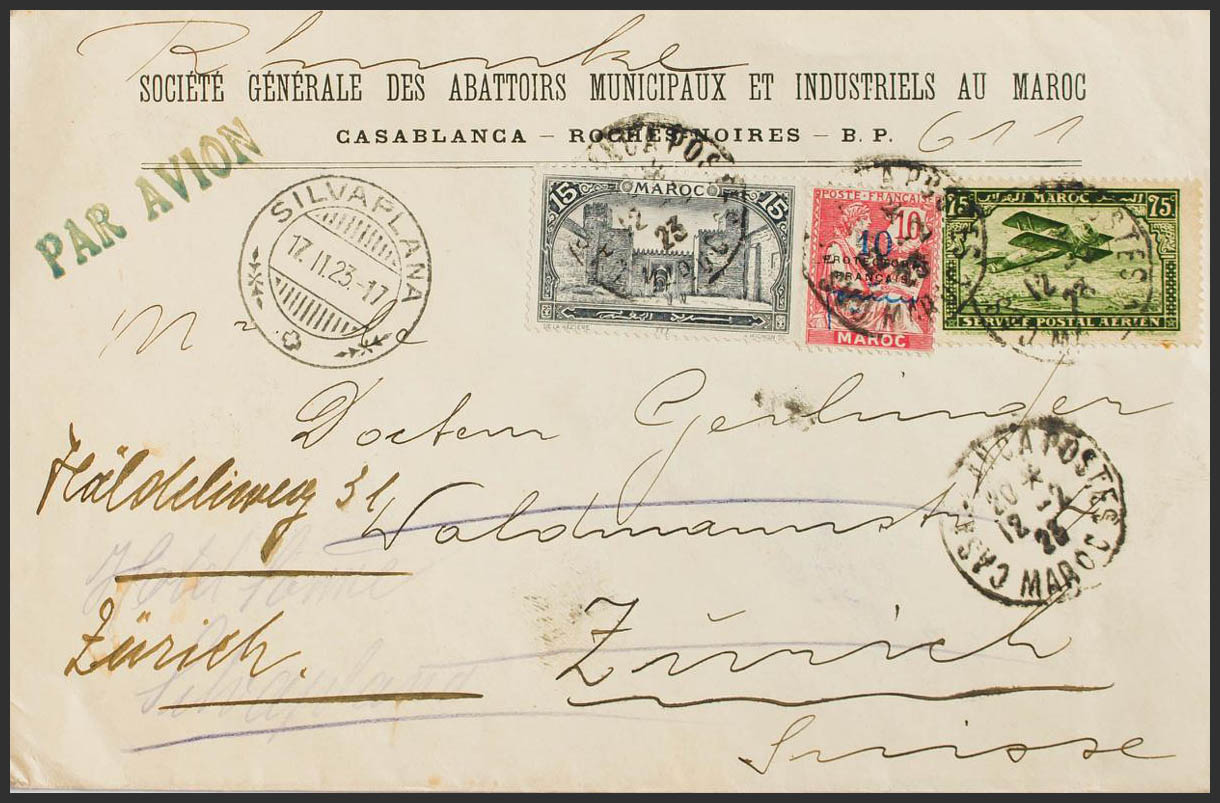 SOCIÉTÉ GÉNÉRALE DES ABATTOIRS MUNICIPAUX ET INDUSTRIELS AU MAROC
CASABLANCA – ROCHES-NOIRES – B. P. 611
PAR AVION
SILVAPLANA
17.II.23.-17
15 MAROC 15
POSTE FRANÇAISE
10
10
PROTECTORAT
FRANÇAIS
MAROC
75c MAROC 75c
SERVICE POSTAL AÉRIEN
Docteur Gerlinder
Häldeliweg 31
Waldmannstr
Hotel
Zürich.
Silvaplana
Zürich
Suisse
CASABLANCA POSTES
12 23
MAROC